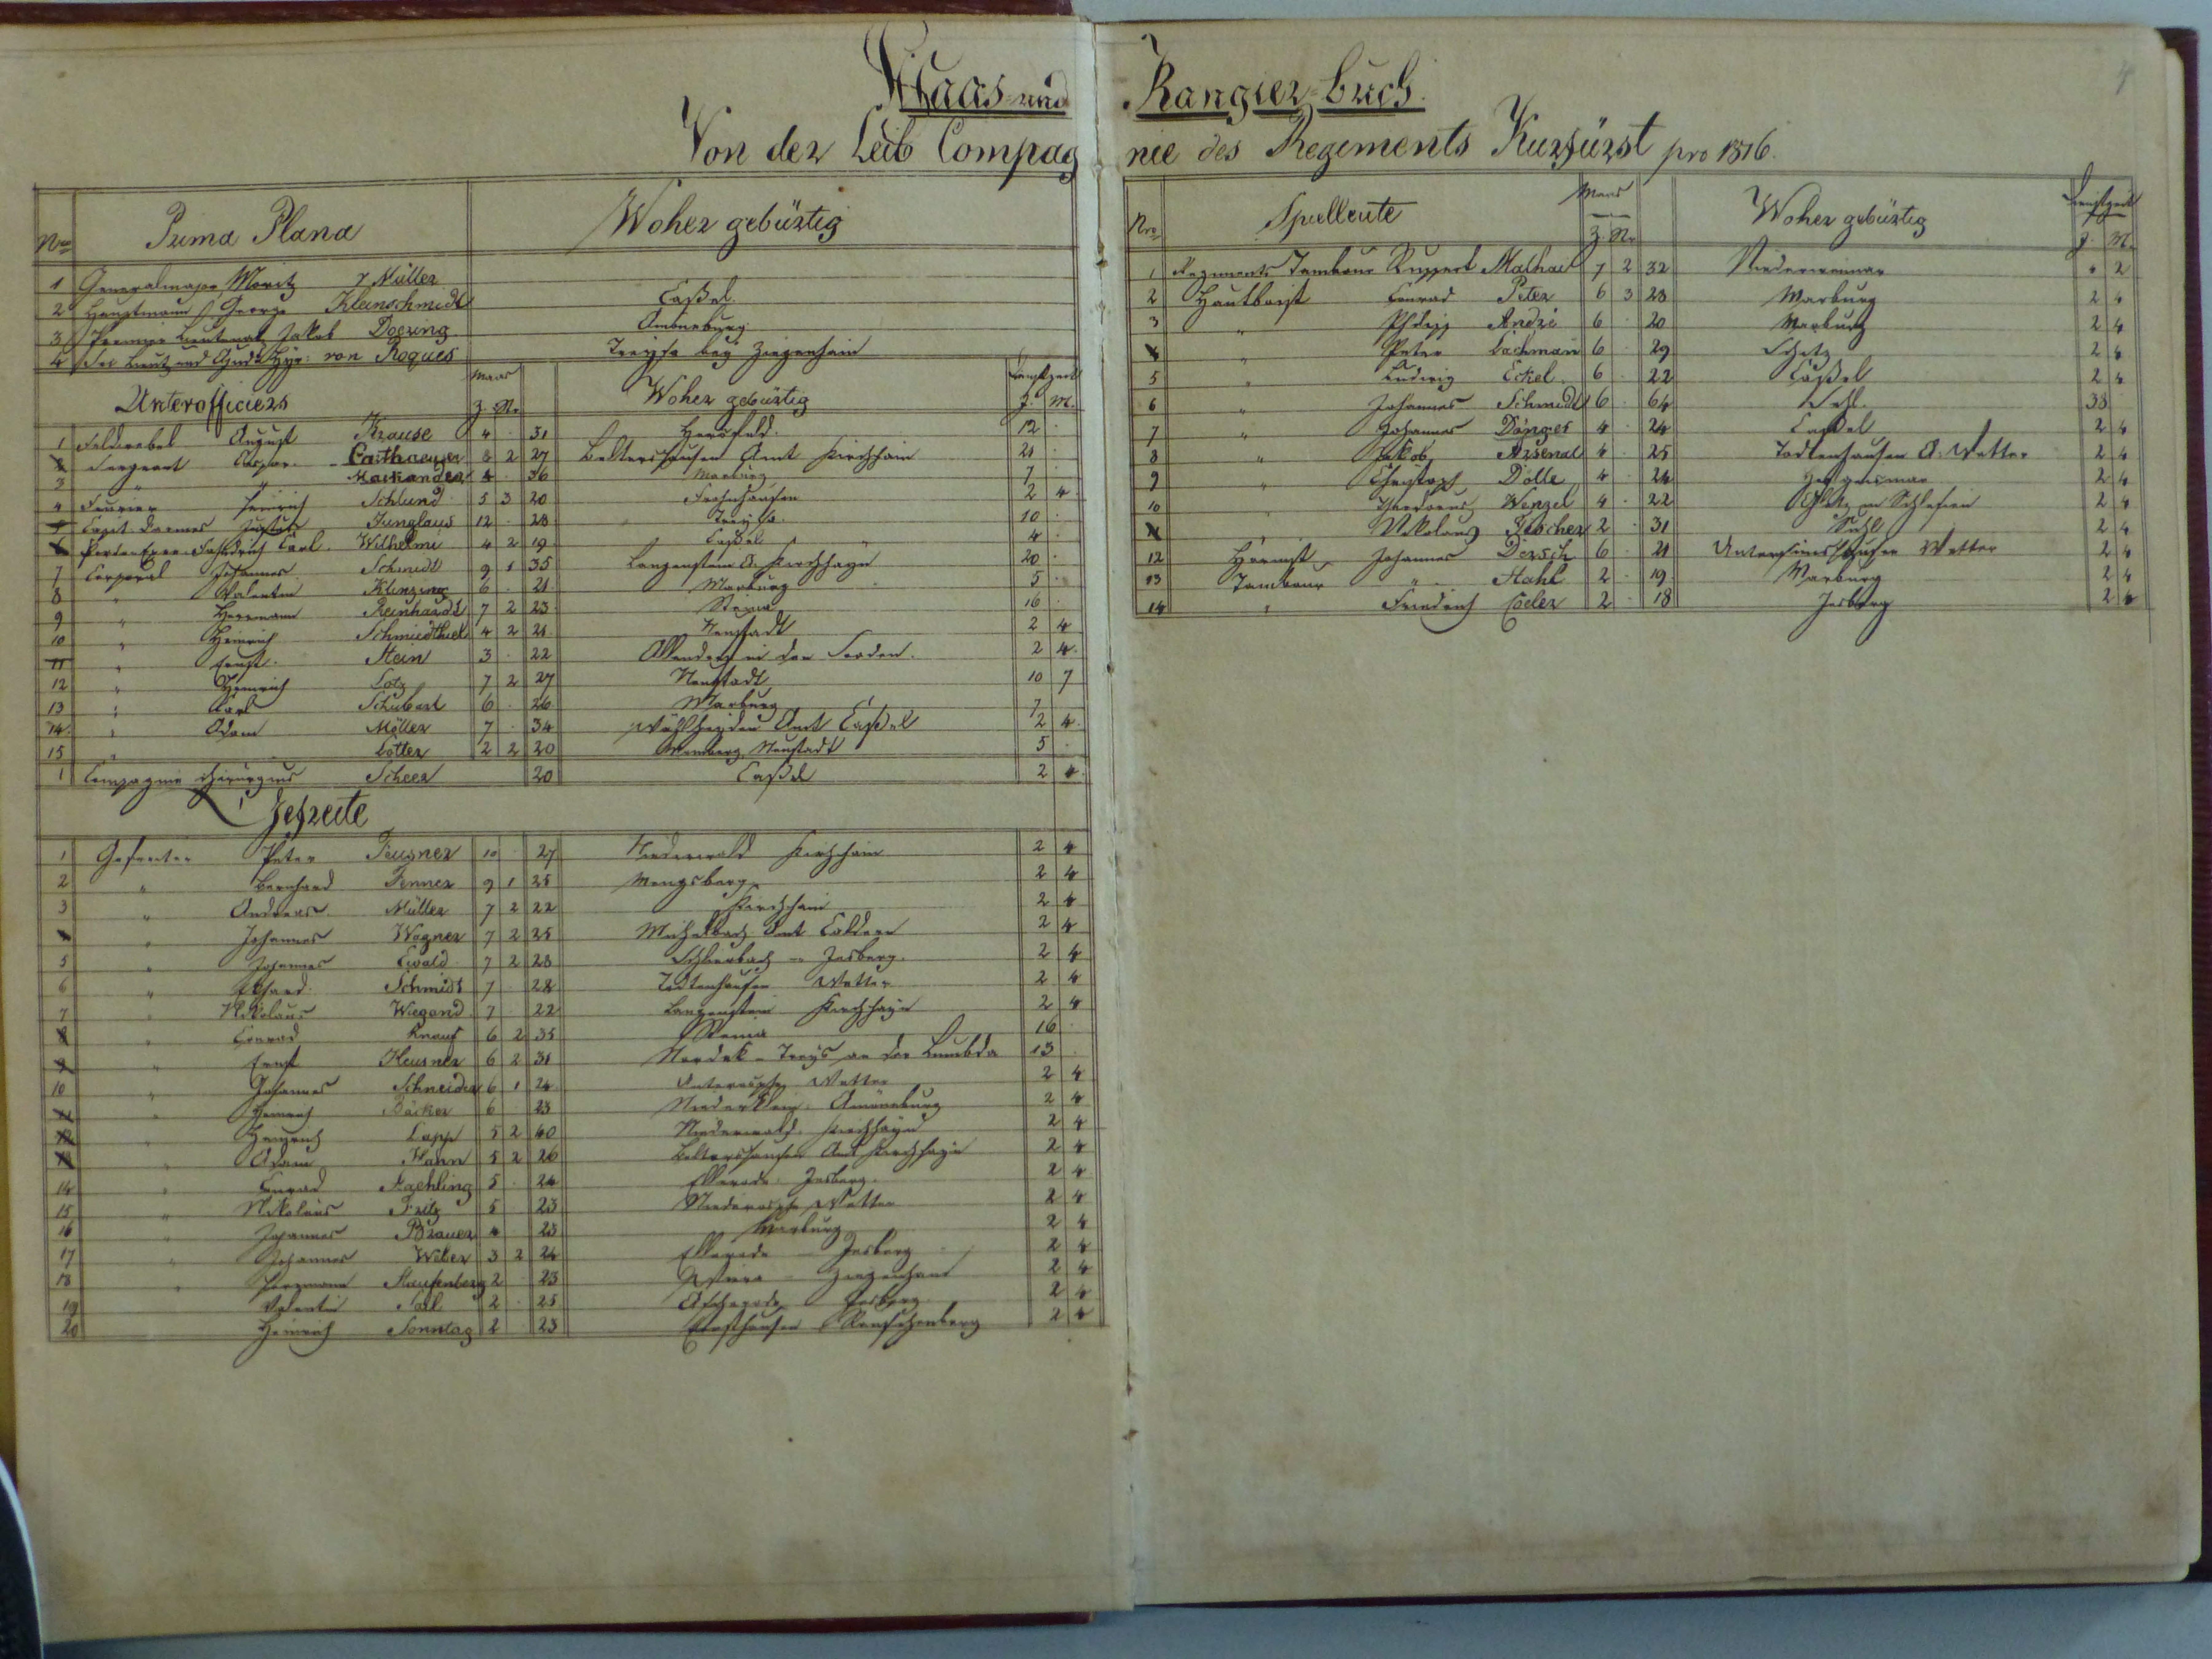 Maas und Rangier-Buch.
Von der Leib Compagnie des Regiments Kurfürst pro 1816.
Nro Prima Plana Woher gebürtig
1 Generalmajor Moritz v Müller
2 Hauptmann George Kleinschmidt Caßel
3 Premier Lieutenat Jakob Doering Amöneburg
4 Sec Lieut und von Roques Treysa bey Ziegenhain
Unterofficiers Maas Z. St. Woher gebürtig Dienstzeit J. M.
1 Feldwebel August Krause 4 · 31 Hersfeld 12 ·
2 Sergeant Caspar 3 2 27 Beltershausen Amt Kirchhain 21 ·
3 " " 4 · 36 Marburg 7 ·
4 Fourier Heinrich Schlund 5 3 20 Frohnhausen 2 4
5 Capit d'armes Justus Junglaus 12 · 28 Treysa 10 ·
6 Carl Wilhelmi 4 2 19 Caßel 4 ·
7 Corporal Johannes Schmidt 9 1 35 Langenstein A. Kirchhayn 20 ·
8 " Valentin Klinzing 6 · 21 Marburg 5 ·
9 " Herrmann Reinhardt 7 2 23 Steina 16 ·
10 " Heinrich Schmiedthiel 4 2 21 Neustadt 2 4
11 " Ernst Stein 3 · 22 Allendorf in den Sooden 2 4
12 " Heinrich Lotz 7 2 27 Neustadt 10 7
13 " Carl Schubart 6 · 26 Marburg 7
14 " Adam Möller 7 · 34 Wahlheyden Amt Caßel 2 4
15 " " Lotter 2 2 20 Momberg Neustadt 5 ·
1 Compagnie Chirurgus Scheer 20 Caßel 2 4
Gefreite
1 Gefreiter Peter Feusner 10 · 27 Niederwald Kirchhain 2 4
2 " Bernhard Fenner 9 1 25 Mengsberg 2 4
3 " Andreas Müller 7 2 22 Kirchhain 2 4
4 " Johannes Wagner 7 2 25 Michelbach Amt Caldern 2 4
5 " Johannes Ewald 7 2 23 Schlierbach - Jesberg 2 4
6 " Ekhard Schmidt 7 · 28 Todtenhausen Wetter 2 4
7 " Nikolaus Wiegand 7 22 Langenstein Kirchhayn 2 4
8 " Conrad Knauf 6 2 35 Steina 16 ·
9 " Ernst Heusner 6 2 31 Nordek - Treys an der Lumbda 13 ·
10 " Johannes Schneider 6 1 24 Unterrosphe Wetter 2 4
11 " Heinrich Bäcker 6 · 23 Niederklein Amöneburg 2 4
12 " Heinrich Lapp 5 2 40 Niederwald Kirchhayn 2 4
13 " Adam Mann 5 2 26 Beltershausen Amt Kirchhayn 2 4
14 " Conrad Kaehling 5 · 24 Ellnrode Jesberg 2 4
15 " Nikolaus Fritz 5 23 Niederrosphe Wetter 2 4
16 " Johannes Brauer 4 · 23 Marburg 2 4
17 " Johannes Weber 3 2 24 Ellnrode Jesberg 2 4
18 " Herrmann Staufenberg 2 · 23 Wiera Ziegenhain 2 4
19 Valentin 2 · 25 Jesberg 2 4
20 Heinrich Sonntag 2 · 23 Ernsthausen Rauschenberg 2 4
4
Nro Spielleute Maas Z. St. Woher gebürtig Dienstzeit J. M.
1 Regiments Tambour Ruppert Mathaei 7 2 32 Niederweimar · 2
2 Hautboist Conrad Peter 6 3 23 Marburg 2 4
3 " Philipp André 6 · 20 Marburg 2 4
4 " Peter Lachman 6 29 2 4
5 " Ludwig Eckel 6 · 22 Caßel 2 4
6 " Johannes Schmidt 6 · 64 Suhl 38
7 " Johannes Dönges 4 · 24 Caßel 2 4
8 " Jakob Arsenal 4 · 25 Todtenhausen A. Wetter 2 4
9 " Christoph Dölle 4 · 24 Hofgeismar 2 4
10 " Wenzel 4 · 22 Glatz in Schlesien 2 4
11 " Nikolaus 2 · 31 Suhl 2 4
12 Johannes Dersch 6 · 21 Untersimshausen Wetter 2 4
13 Tambour " Stahl 2 · 19 Marburg 2 4
14 " Friedrich 2 · 18 Jesberg 2 4